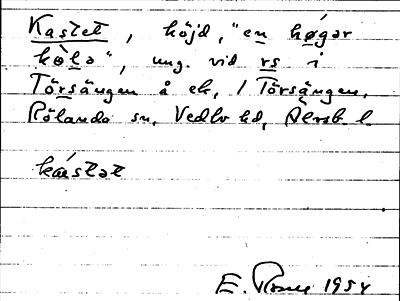 Kastet, höjd, "en hǿgər
kòlə", ung. vid rs i
Törsängen å ek, / Törsängen,
Rölanda sn, Vedbo hd, Älvsb. l.
kástət
E. 1954